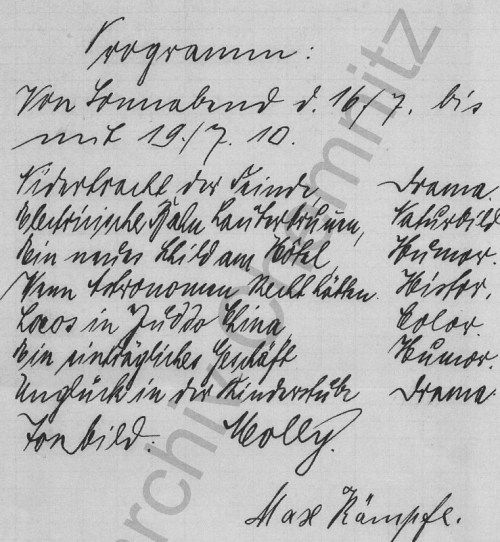 Programm:
Von Sonnabend d. 16./7. bis
mit 19./7. 10.
Niedertracht der Feinde, Drama.
Electrische Bahn Lauterbrunnen, Naturbild
Ein neues Schild am Hôtel, Humor.
Wenn Astronomen Recht hätten. Histor.
Laos in China Color.
Ein einträgliches Geschäft Humor.
Unglück in der Kinderstube Drama
Tonbild: Molly.
Max Kämpfe.
archiv Chemnitz